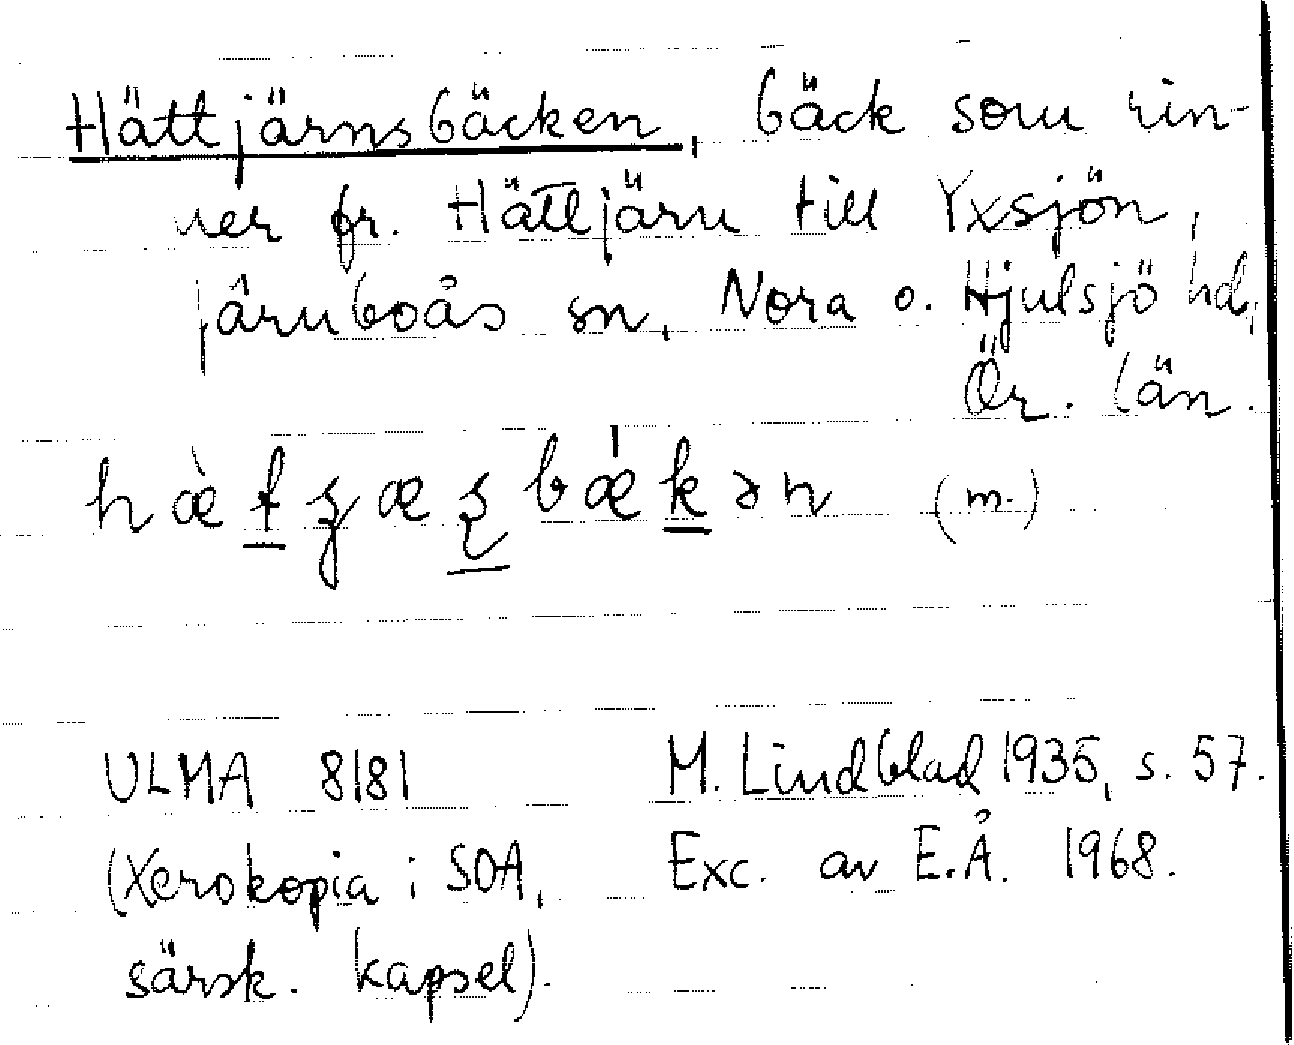 Hättjärnsbäcken, bäck som rin-
ner fr. Hättjärn till Yxsjön,
Järnboås sn, Nora o. Hjulsjö hd,
Ör. län.
(m.)
ULMA 8181 M. Lindblad 1935, s. 57.
(Xerokopia i SOA, Exc. av E.Å. 1968.
särsk. kapsel).